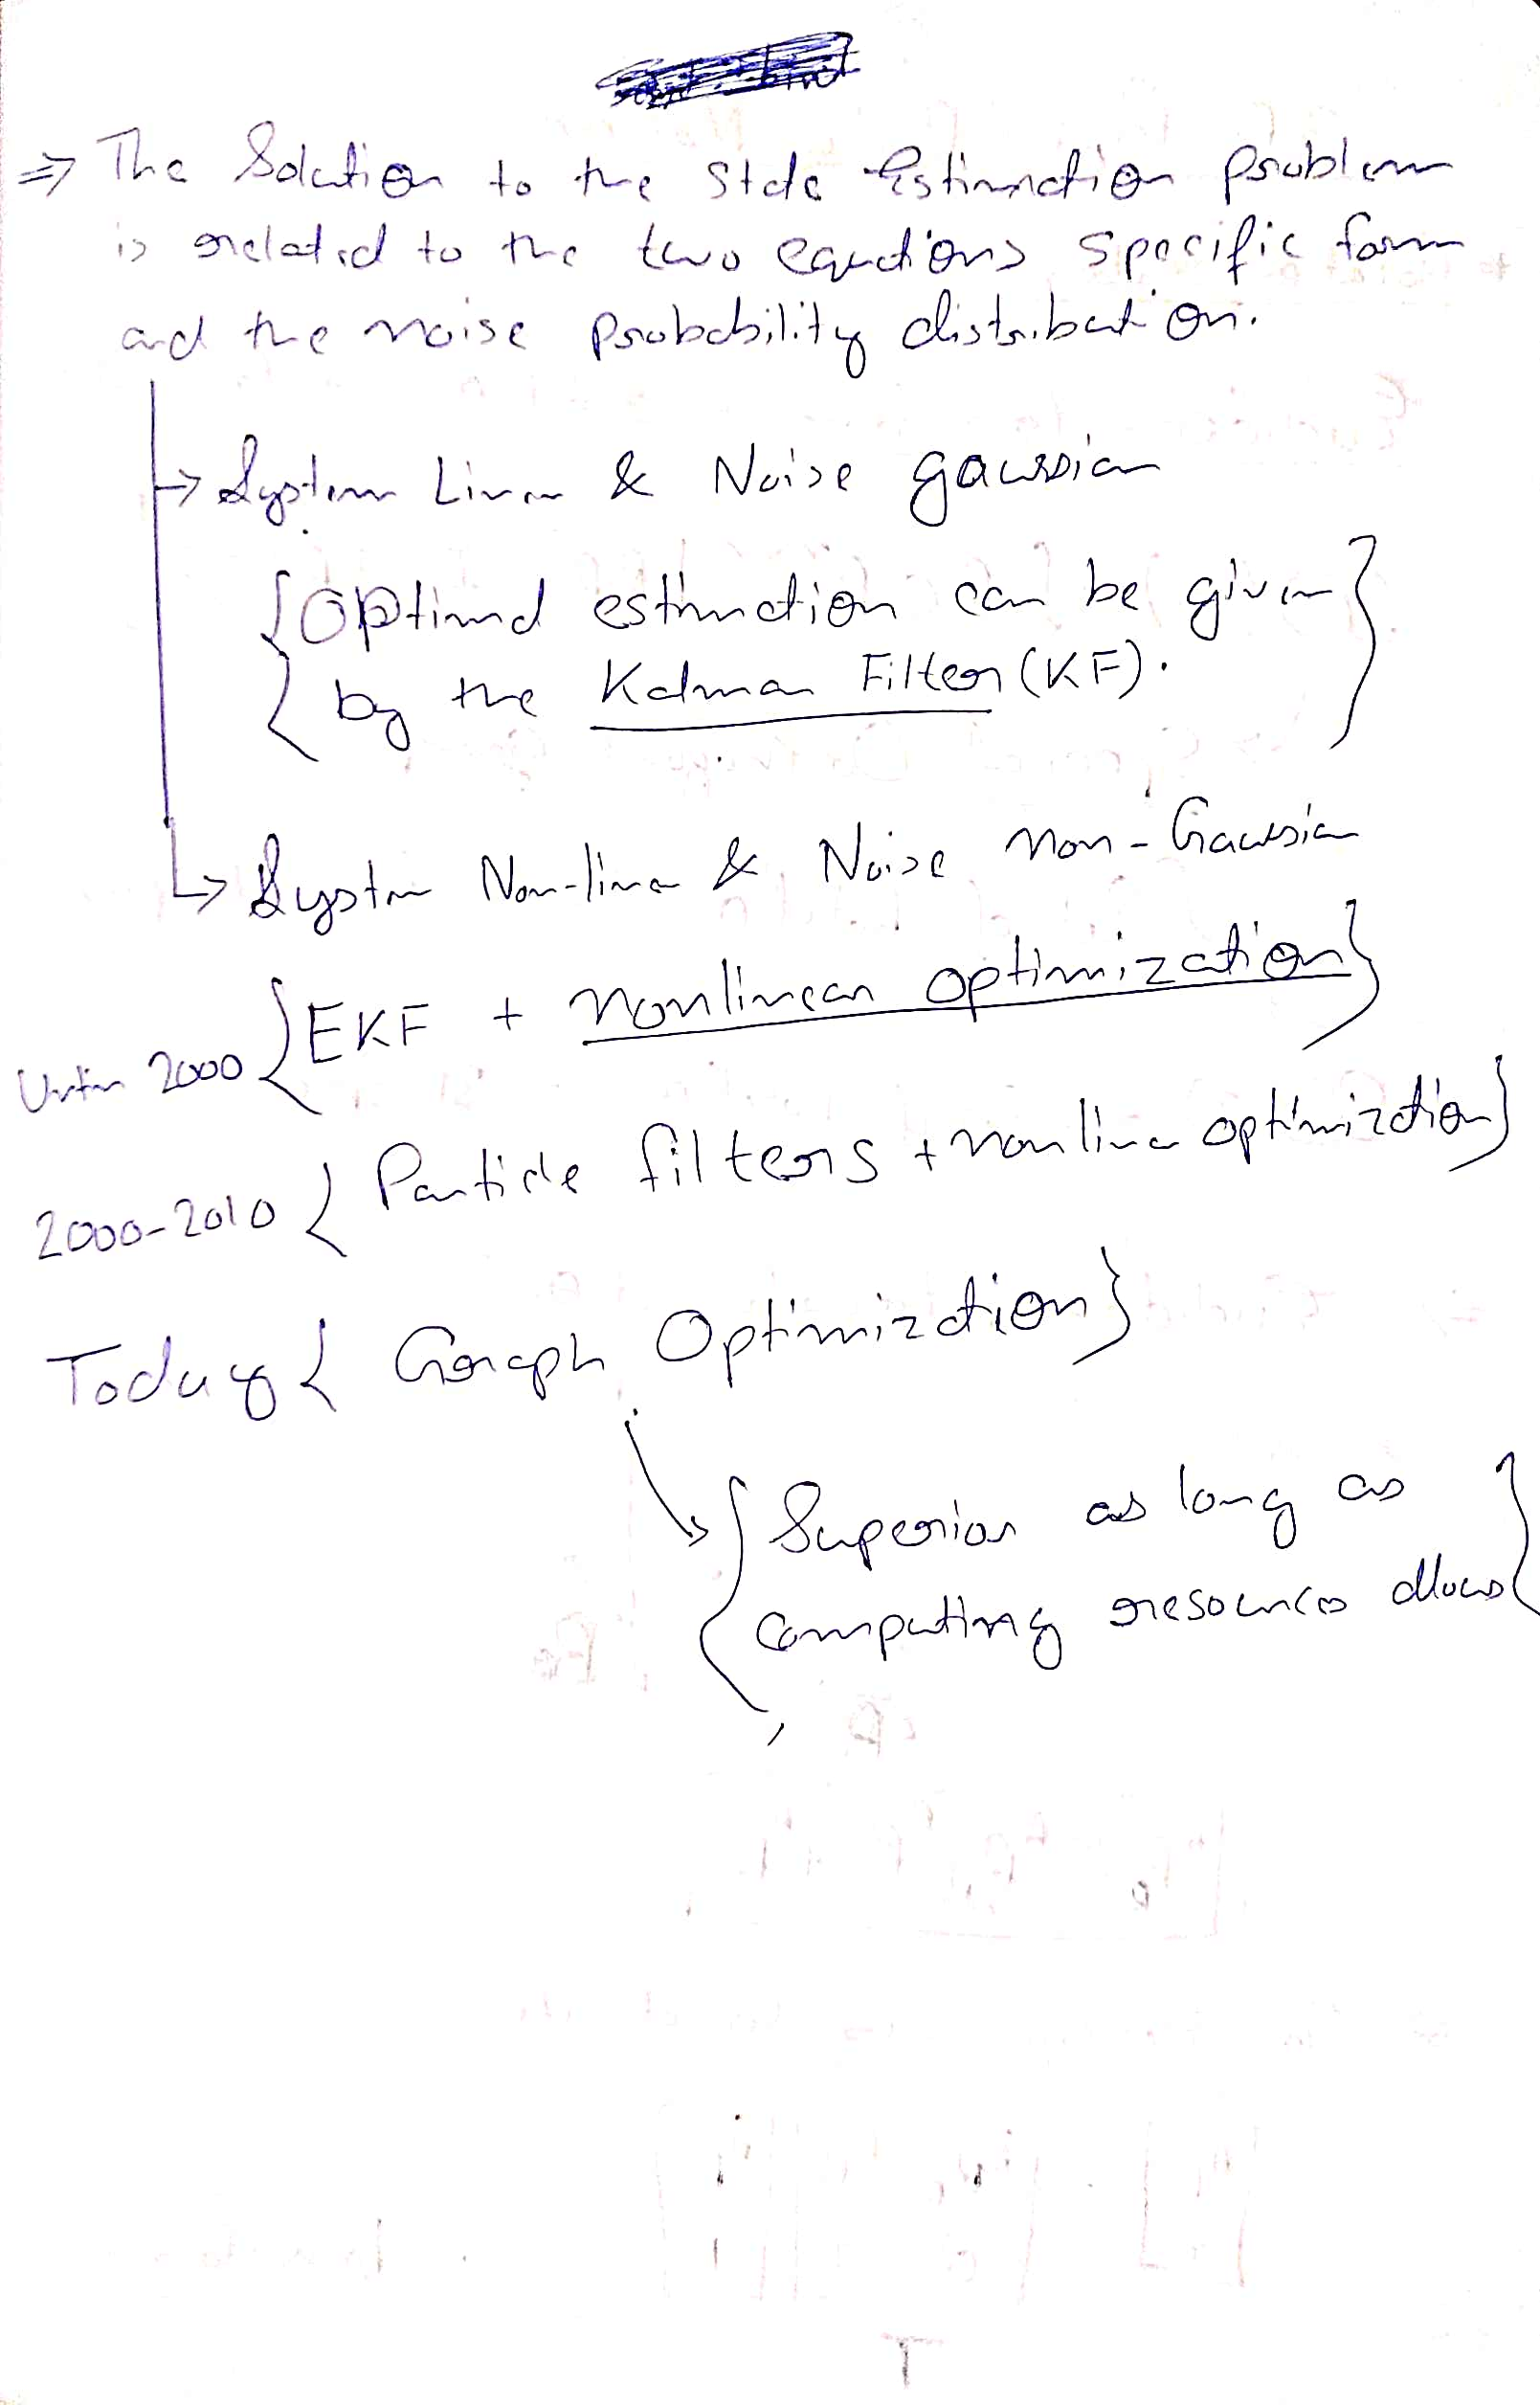 ⇒ The Solution to the State Estimation problem
is related to the two equations specific form
and the noise probability distribution.
→ System Linear & Noise gaussian
{Optimal estimation can be given}
by the Kalman Filter (KF).
↳ System Non-linear & Noise non-Gaussian
2000 {EKF + nonlinear optimization}
2000-2010 { Particle filters + nonlinear optimization}
Today { Graph Optimization}
↘ {Superior as long as
computing resources allows}